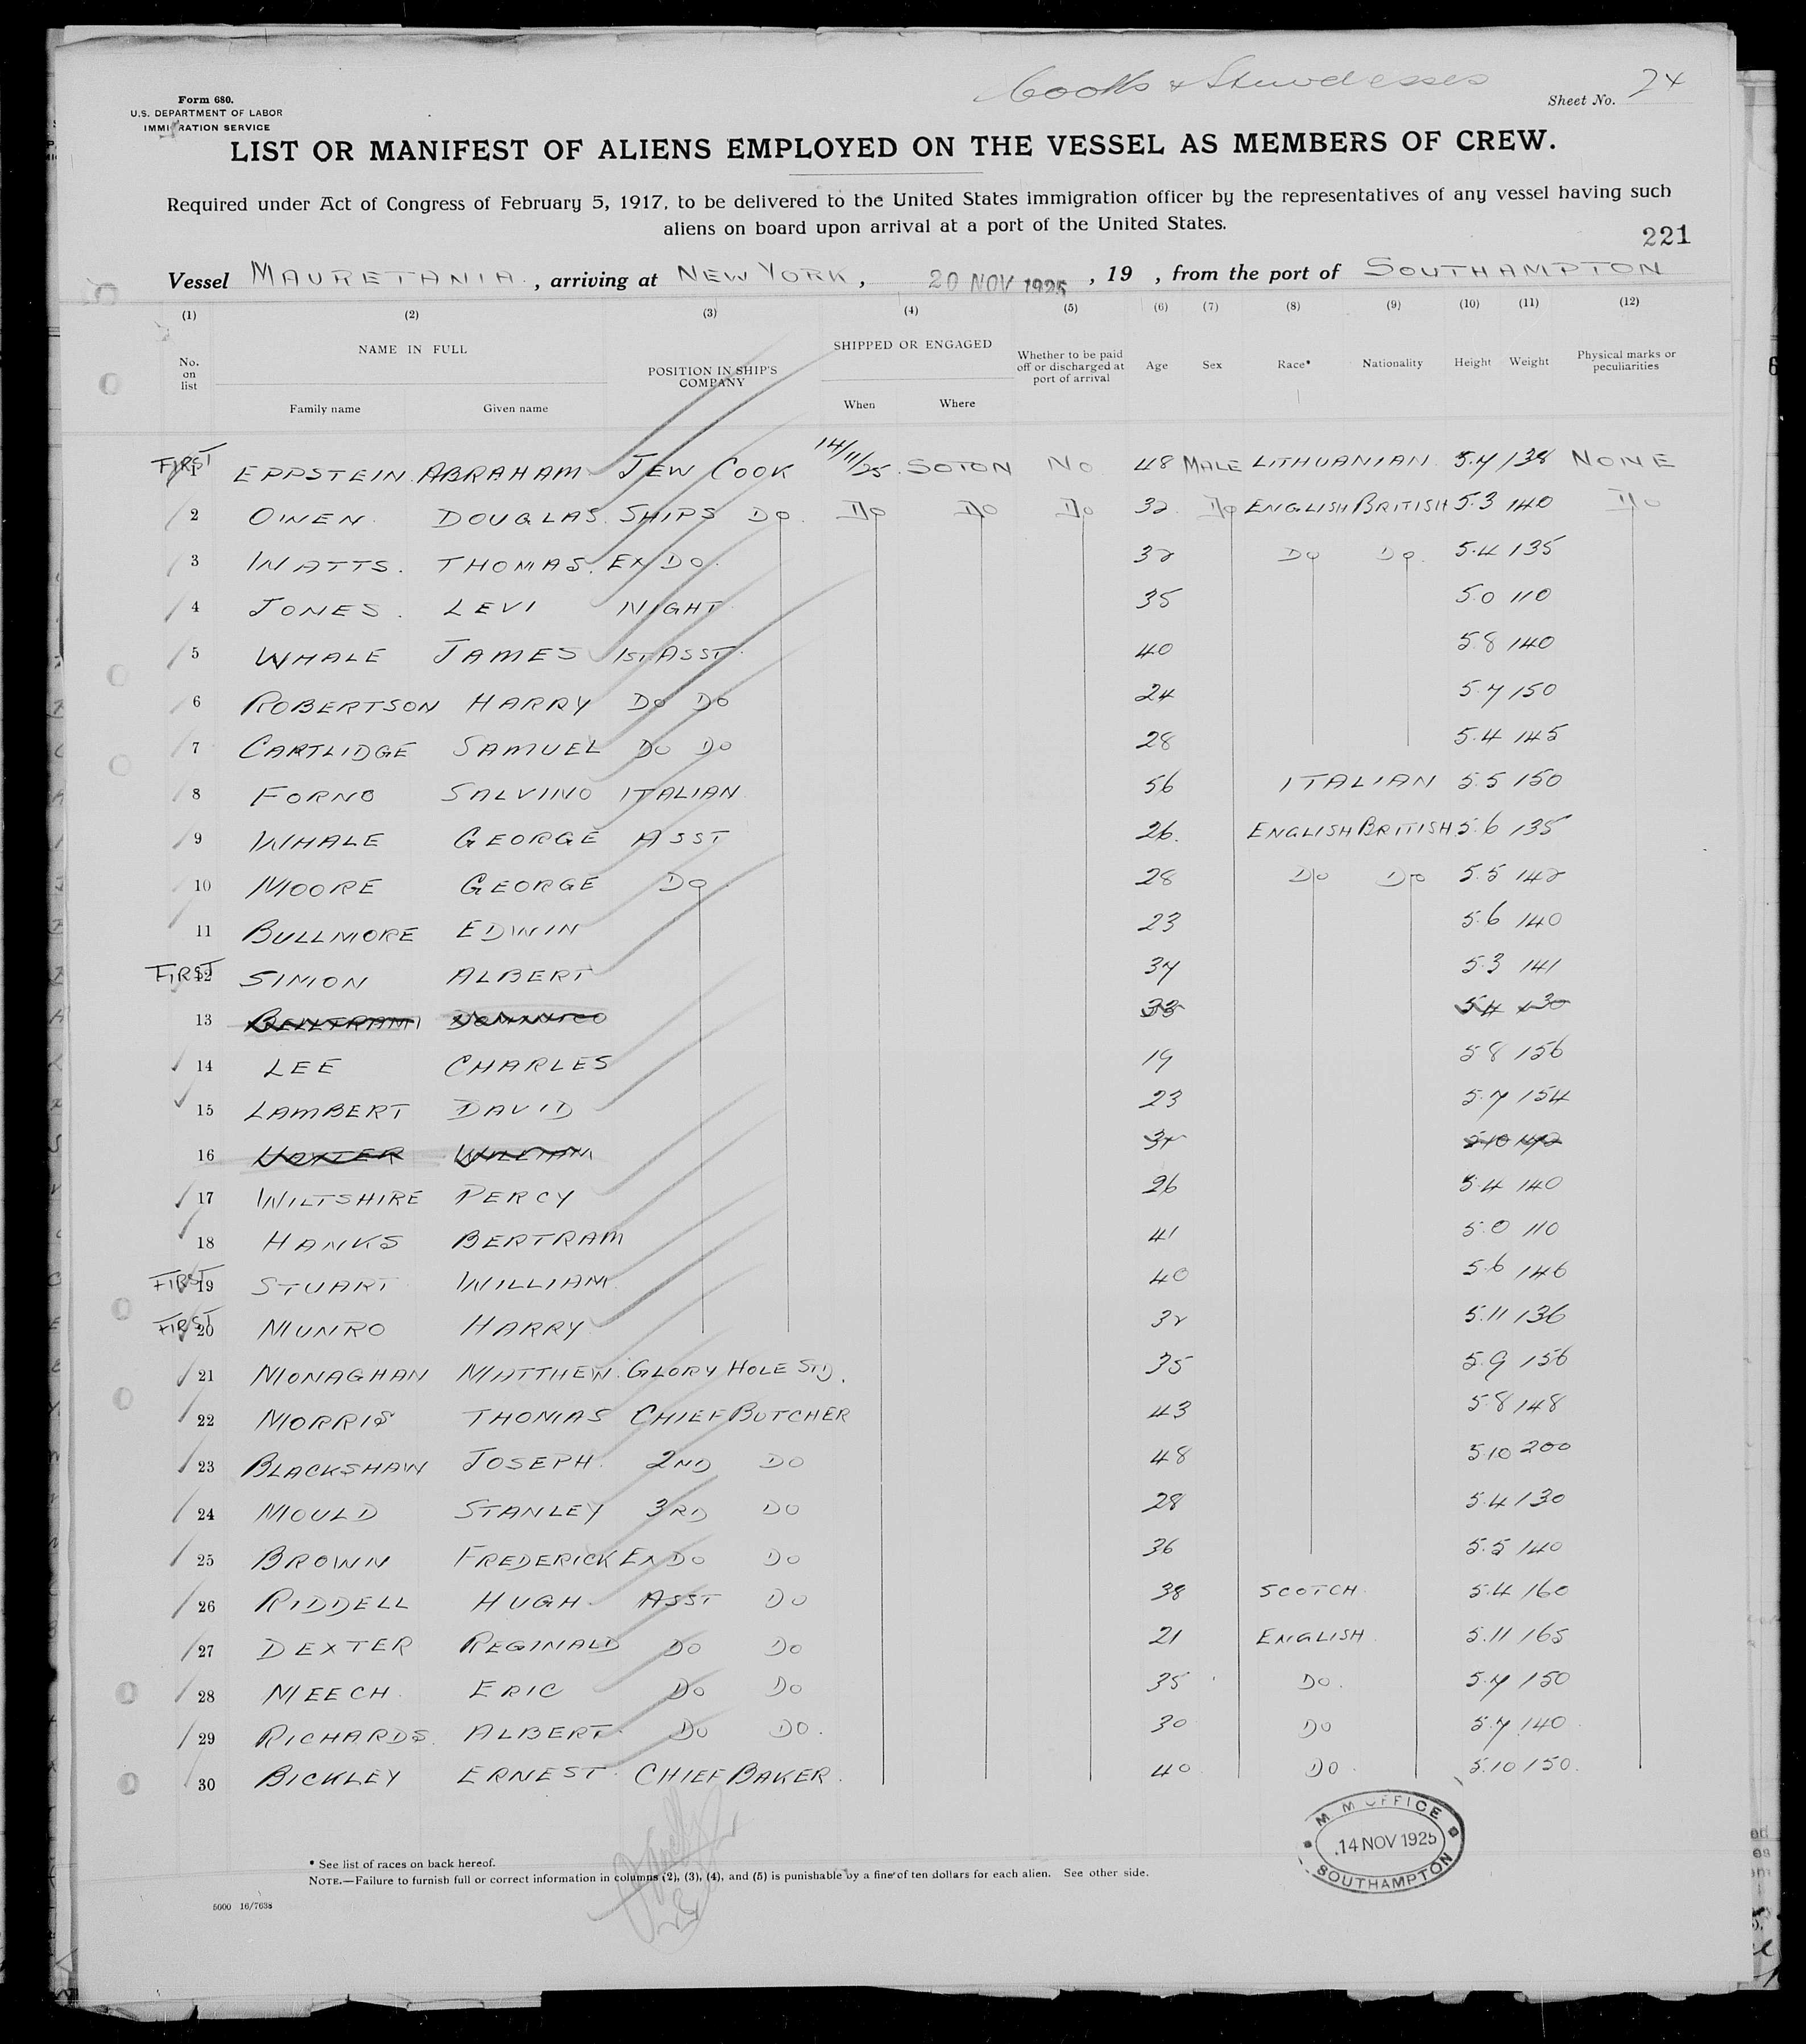 Cooks & Stewardesses
Form 680.
U.S. DEPARTMENT OF LABOR
IMMIGRATION SERVICE
Sheet No. 24
LIST OR MANIFEST OF ALIENS EMPLOYED ON THE VESSEL AS MEMBERS OF CREW.
Required under Act of Congress of February 5, 1917, to be delivered to the United States immigration officer by the representatives of any vessel having such
aliens on board upon arrival at a port of the United States.
221
Vessel MAURETANIA, arriving at NEW YORK, 20 NOV 1925, 19 , from the port of SOUTHAMPTON
(1) (2) (3) (4) (5) (6) (7) (8) (9) (10) (11) (12)
No. on list NAME IN FULL POSITION IN SHIP'S COMPANY SHIPPED OR ENGAGED Whether to be paid off or discharged at port of arrival Age Sex Race* Nationality Height Weight Physical marks or peculiarities
Family name Given name When Where
FIRST 1 EPPSTEIN ABRAHAM JEW COOK 14/11/25 SOTON NO 48 MALE LITHUANIAN 5.7 138 NONE
2 OWEN DOUGLAS SHIPS DO DO DO DO 32 DO ENGLISH BRITISH 5.3 140 DO
3 WATTS THOMAS EX DO 32 DO DO 5.4 135
4 JONES LEVI NIGHT 35 5.0 110
5 WHALE JAMES 1ST ASST 40 5.8 140
6 ROBERTSON HARRY DO DO 24 5.7 150
7 CARTLIDGE SAMUEL DO DO 28 5.4 145
8 FORNO SALVINO ITALIAN 56 ITALIAN 5.5 150
9 WHALE GEORGE ASST 26 ENGLISH BRITISH 5.6 135
10 MOORE GEORGE DO 28 DO DO 5.5 142
11 BULLMORE EDWIN 23 5.6 140
FIRST 12 SIMON ALBERT 37 5.3 141
13 BELTRAMI DOMINICO 33 5.4 130
14 LEE CHARLES 19 5.8 156
15 LAMBERT DAVID 23 5.7 154
16 WILLIAM 5.10
17 WILTSHIRE PERCY 26 5.4 140
18 HANKS BERTRAM 41 5.0 110
FIRST 19 STUART WILLIAM 40 5.6 146
FIRST 20 MUNRO HARRY 32 5.11 136
21 MONAGHAN MATTHEW GLORY HOLE STD. 35 5.9 156
22 MORRIS THOMAS CHIEF BUTCHER 43 5.8 148
23 BLACKSHAW JOSEPH 2ND DO 48 5.10 200
24 MOULD STANLEY 3RD DO 28 5.4 130
25 BROWN FREDERICK EX DO DO 36 5.5 140
26 RIDDELL HUGH ASST DO 38 SCOTCH 5.4 160
27 DEXTER REGINALD DO DO 21 ENGLISH 5.11 165
28 MEECH ERIC DO DO 35 DO 5.7 150
29 RICHARDS ALBERT DO DO 30 DO 5.7 140
30 BICKLEY ERNEST CHIEF BAKER 40 DO 5.10 150
M. M. OFFICE
14 NOV 1925
SOUTHAMPTON
* See list of races on back hereof.
NOTE.—Failure to furnish full or correct information in columns (2), (3), (4), and (5) is punishable by a fine of ten dollars for each alien. See other side.
5000 16/7638